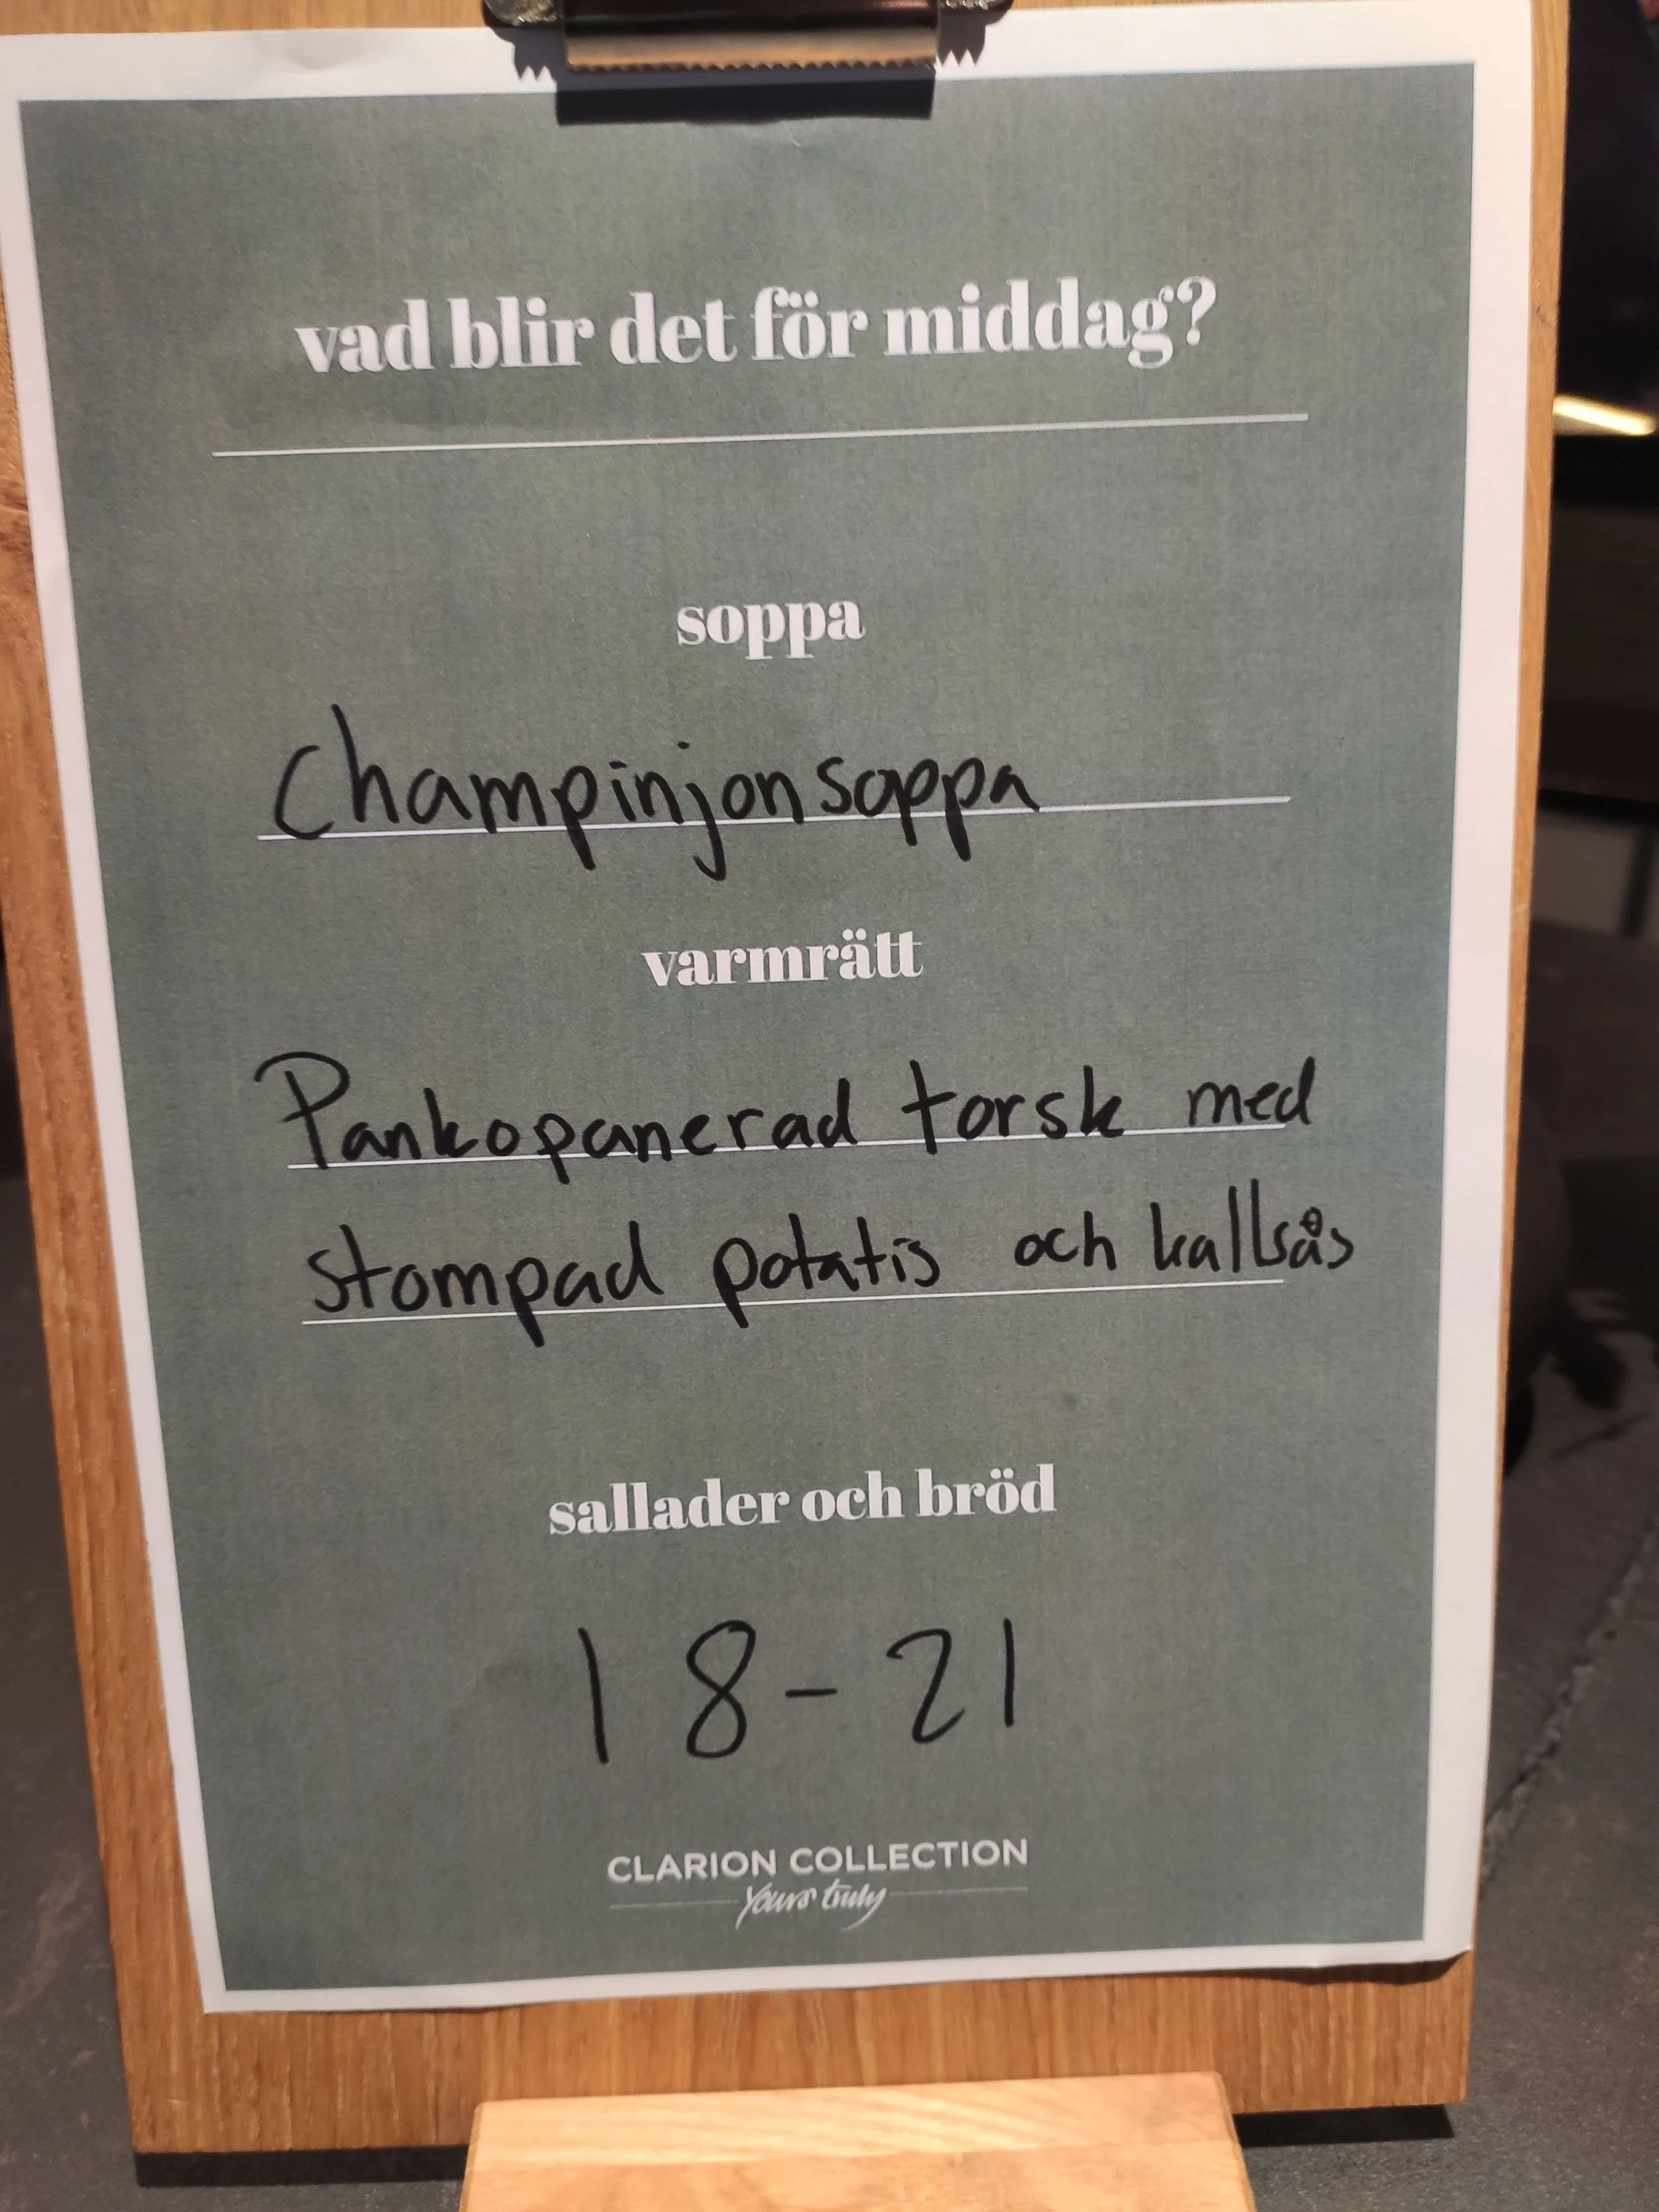 vad blir det för middag?
soppa
Champinjonsoppa
varmrätt
Pankopanerad torsk med
stompad potatis och kallsås
sallader och bröd
18-21
CLARION COLLECTION
Yours truly